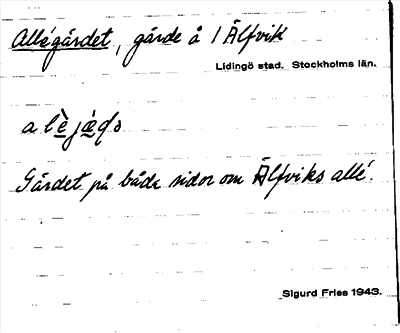 Allégärdet, gärde å 1 Älfvik
Lidingö stad. Stockholms län.
a lè jæ̀ḍə
Gärdet på både sidor om Älfviks allé.
Sigurd Fries 1943.